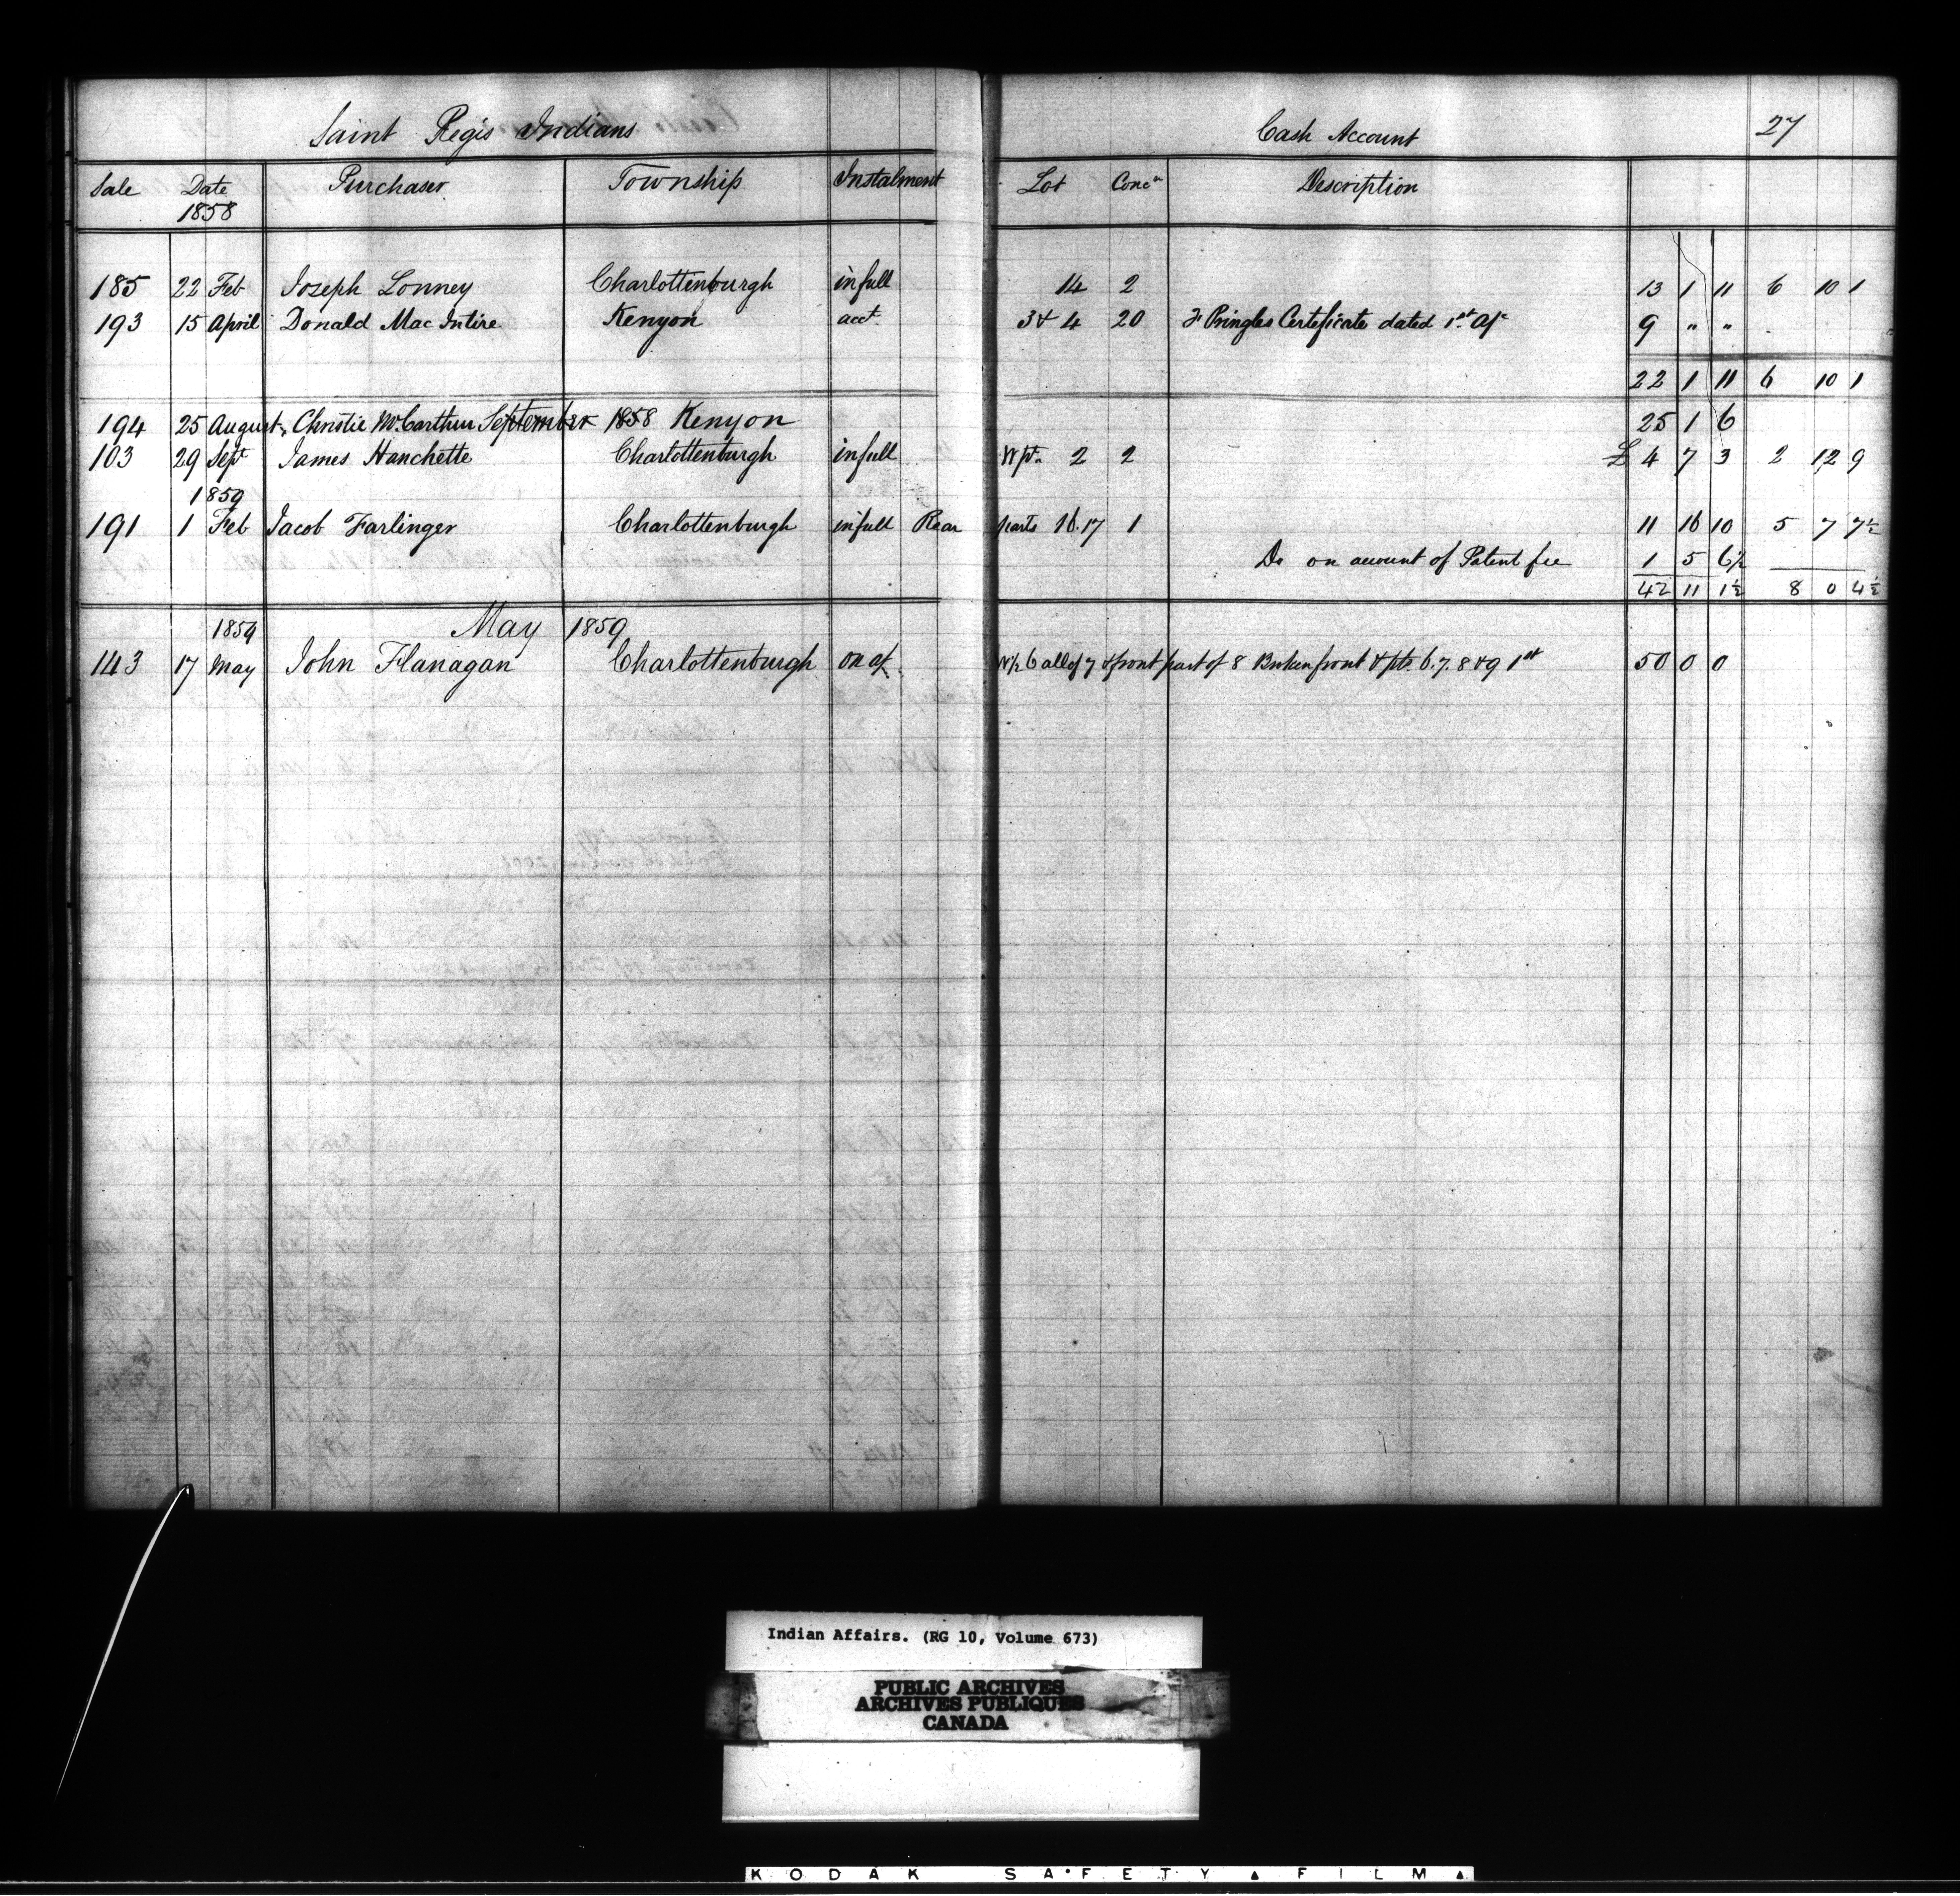 Saint Regis Indians Cash Account 27
Sale Date Purchaser Township Instalment Lot Concn Description
1858
185 22 Feb Joseph Lonney Charlottenburgh in full 14 2 13 1 11 6 10 1
193 15 April Donald Mac Intire Kenyon acct. 3 & 4 20 Pringles Certificate dated 1st Ap 9 " "
22 1 11 6 10 1
194 25 August Christie McCarthur September 1858 Kenyon 25 1 6
103 29 Sept James Hanchette Charlottenburgh in full W pt. 2 2 £ 4 7 3 2 12 9
1859
191 1 Feb Jacob Farlinger Charlottenburgh in full Rear parts 16.17 1 11 16 10 5 7 7½
Do on account of Patent fee 1 5 6½
42 11 1½ 8 0 4½
1859 May 1859
143 17 May John Flanagan Charlottenburgh on a/c W½ 6 all of 7 & front part of 8 Broken front & pts. 6.7.8 & 9 1st 50 0 0
Indian Affairs. (RG 10, Volume 673)
PUBLIC ARCHIVES
ARCHIVES PUBLIQUES
CANADA
KODAK SAFETY FILM